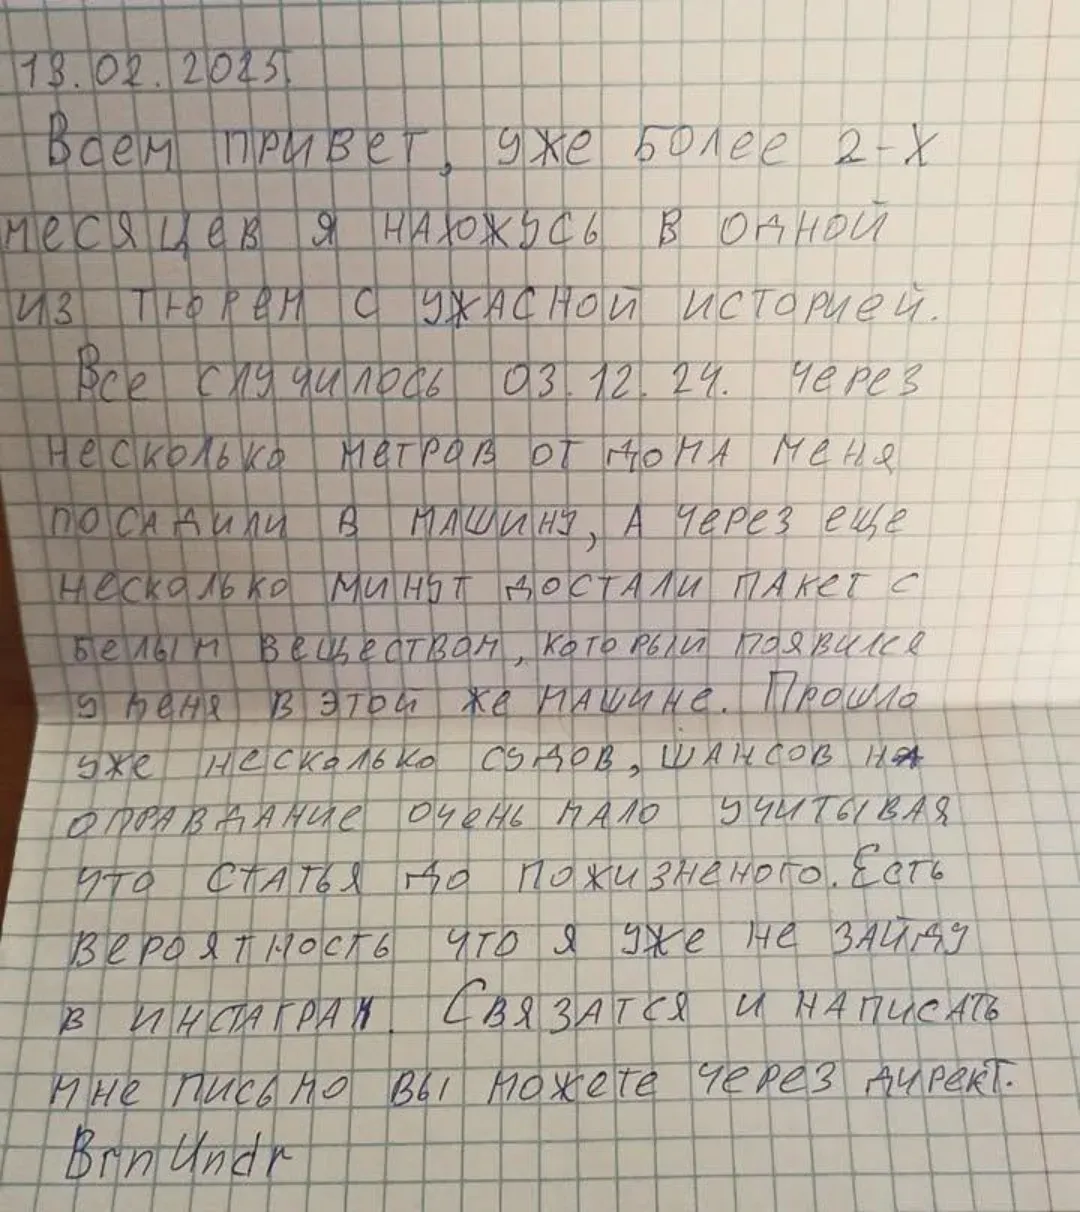 13.02.2025.
Всем привет, уже более 2-х
месяцев я нахожусь в одной
из тюрем с ужасной историей.
Все случилось 03.12.24. через
несколько метров от дома меня
посадили в машину, а через еще
несколько минут достали пакет с
белым веществом, который появился
у меня в этой же машине. Прошло
уже несколько судов, шансов на
оправдание очень мало учитывая
что статья до пожизненого. Есть
вероятность что я уже не зайду
в инстаграм. Связатся и написать
мне письмо вы можете через директ.
BrnUndr